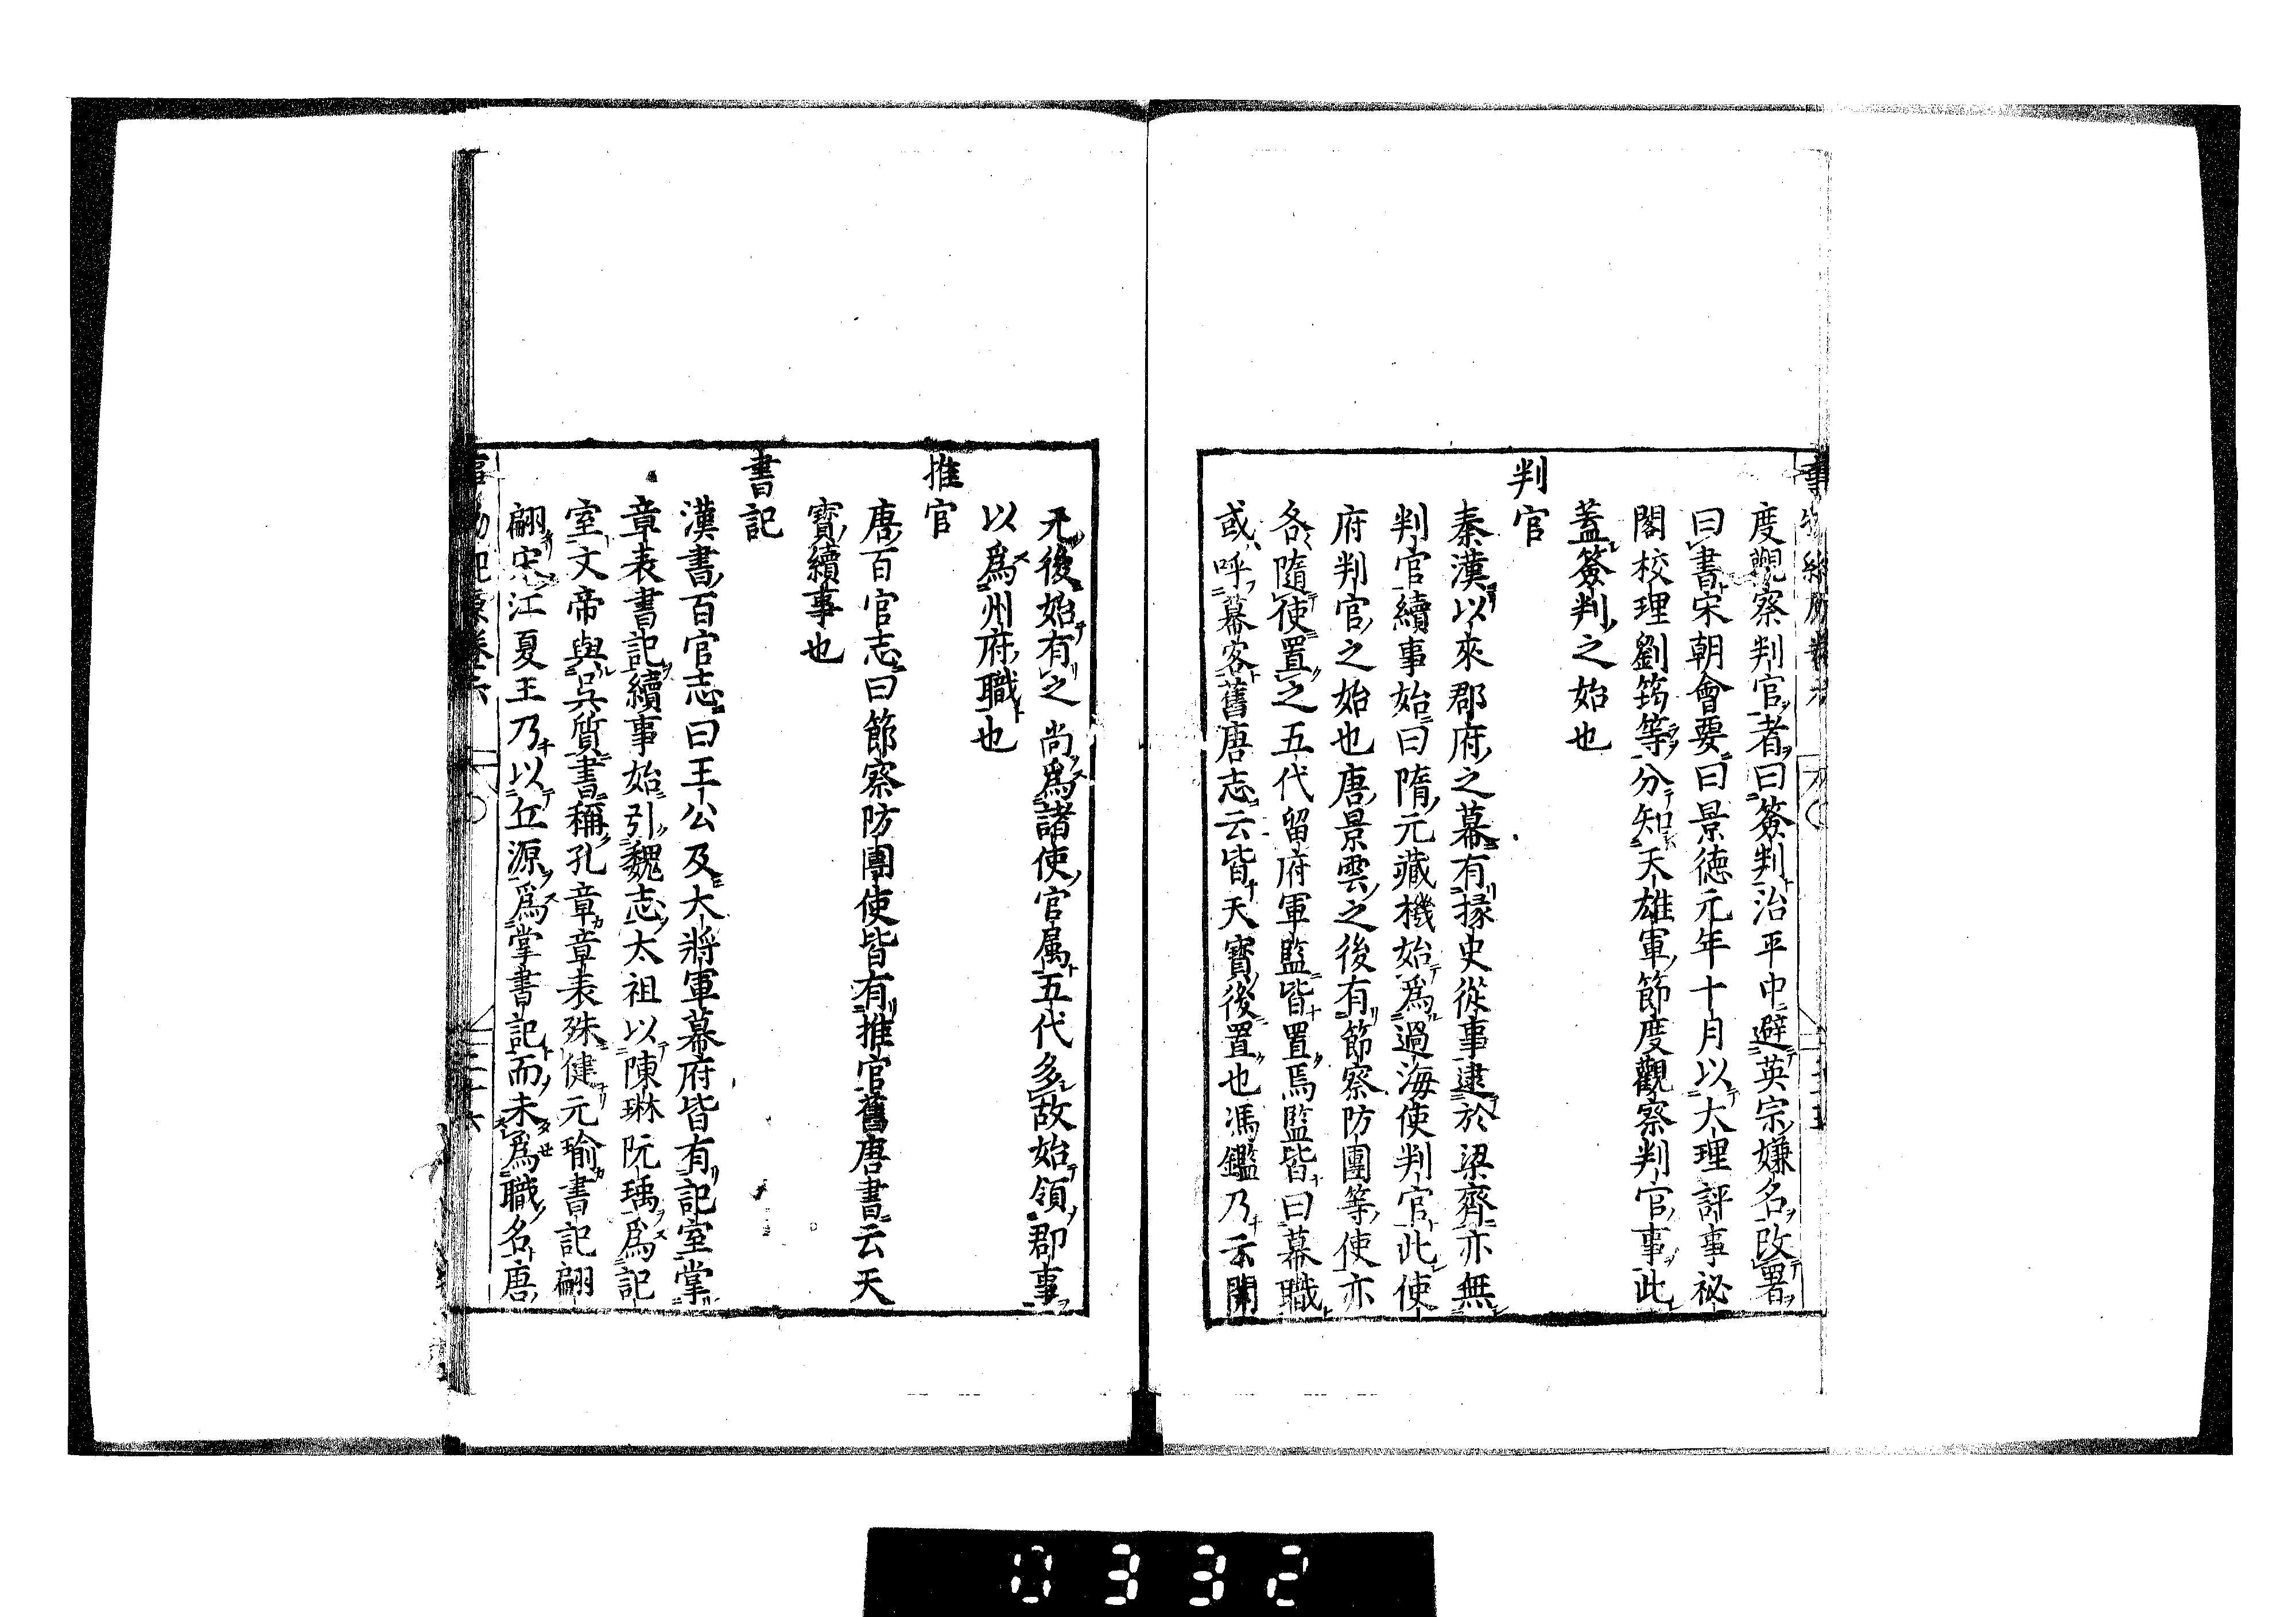 度觀察判官者曰簽判治平中避英宗嫌名改署
曰書宋朝會要曰景德元年十月以大理評事祕
閣校理劉筠等分知天雄軍節度觀察判官事此
蓋簽判之始也
判官
秦漢以來郡府之幕有掾史從事逮於梁齊亦無
判官續事始曰隋元藏機始為過海使判官此使
府判官之始也唐景雲之後有節察防團等使亦
各隨使置之五代留府軍監皆置焉監皆曰幕職
或呼幕客舊唐志云皆天寶後置也馮鑑乃云開
元後始有之尚爲諸使官属五代多故始領郡事
以爲州府職也
推官
唐百官志曰節察防團使皆有推官舊唐書云天
寶續事也
書記
漢書百官志曰王公及大將軍幕府皆有記室掌
章表書記續事始引魏志太祖以陳琳阮瑀爲記
室文帝與吳質書稱孔章章表殊健元瑜書記翩
翩宋江夏王乃以丘源爲掌書記而未爲職名唐
0332